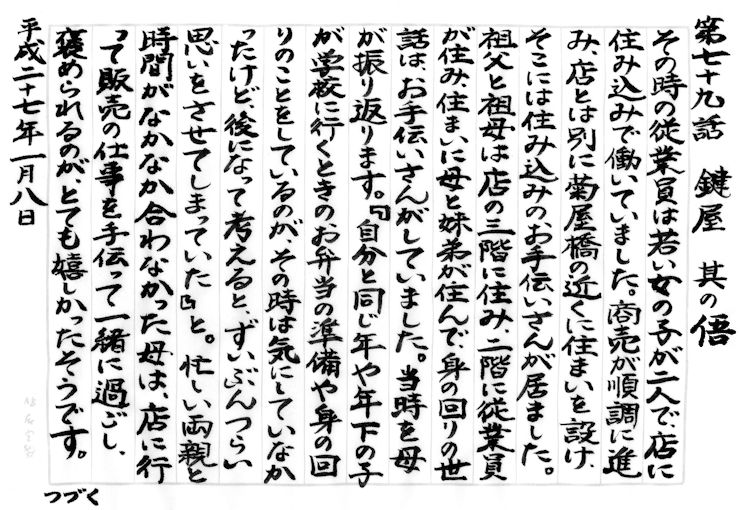 第七十九話　鍵屋　其の伍
その時の従業員は若い女の子が二人で、店に
住み込みで働いていました。商売が順調に進
み、店とは別に菊屋橋の近くに住まいを設け、
そこには住み込みのお手伝いさんが居ました。
祖父と祖母は店の三階に住み、二階に従業員
が住み、住まいに母と妹弟が住んで、身の回りの世
話は、お手伝いさんがしていました。当時を母
が振り返ります。『自分と同じ年や年下の子
が学校に行くときのお弁当の準備や身の回
りのことをしているのが、その時は気にしていなか
ったけど、後になって考えると、ずいぶんつらい
思いをさせてしまっていた』と。忙しい両親と
時間がなかなか合わなかった母は、店に行
って販売の仕事を手伝って一緒に過ごし、
褒められるのが、とても嬉しかったそうです。
平成二十七年一月八日
つづく